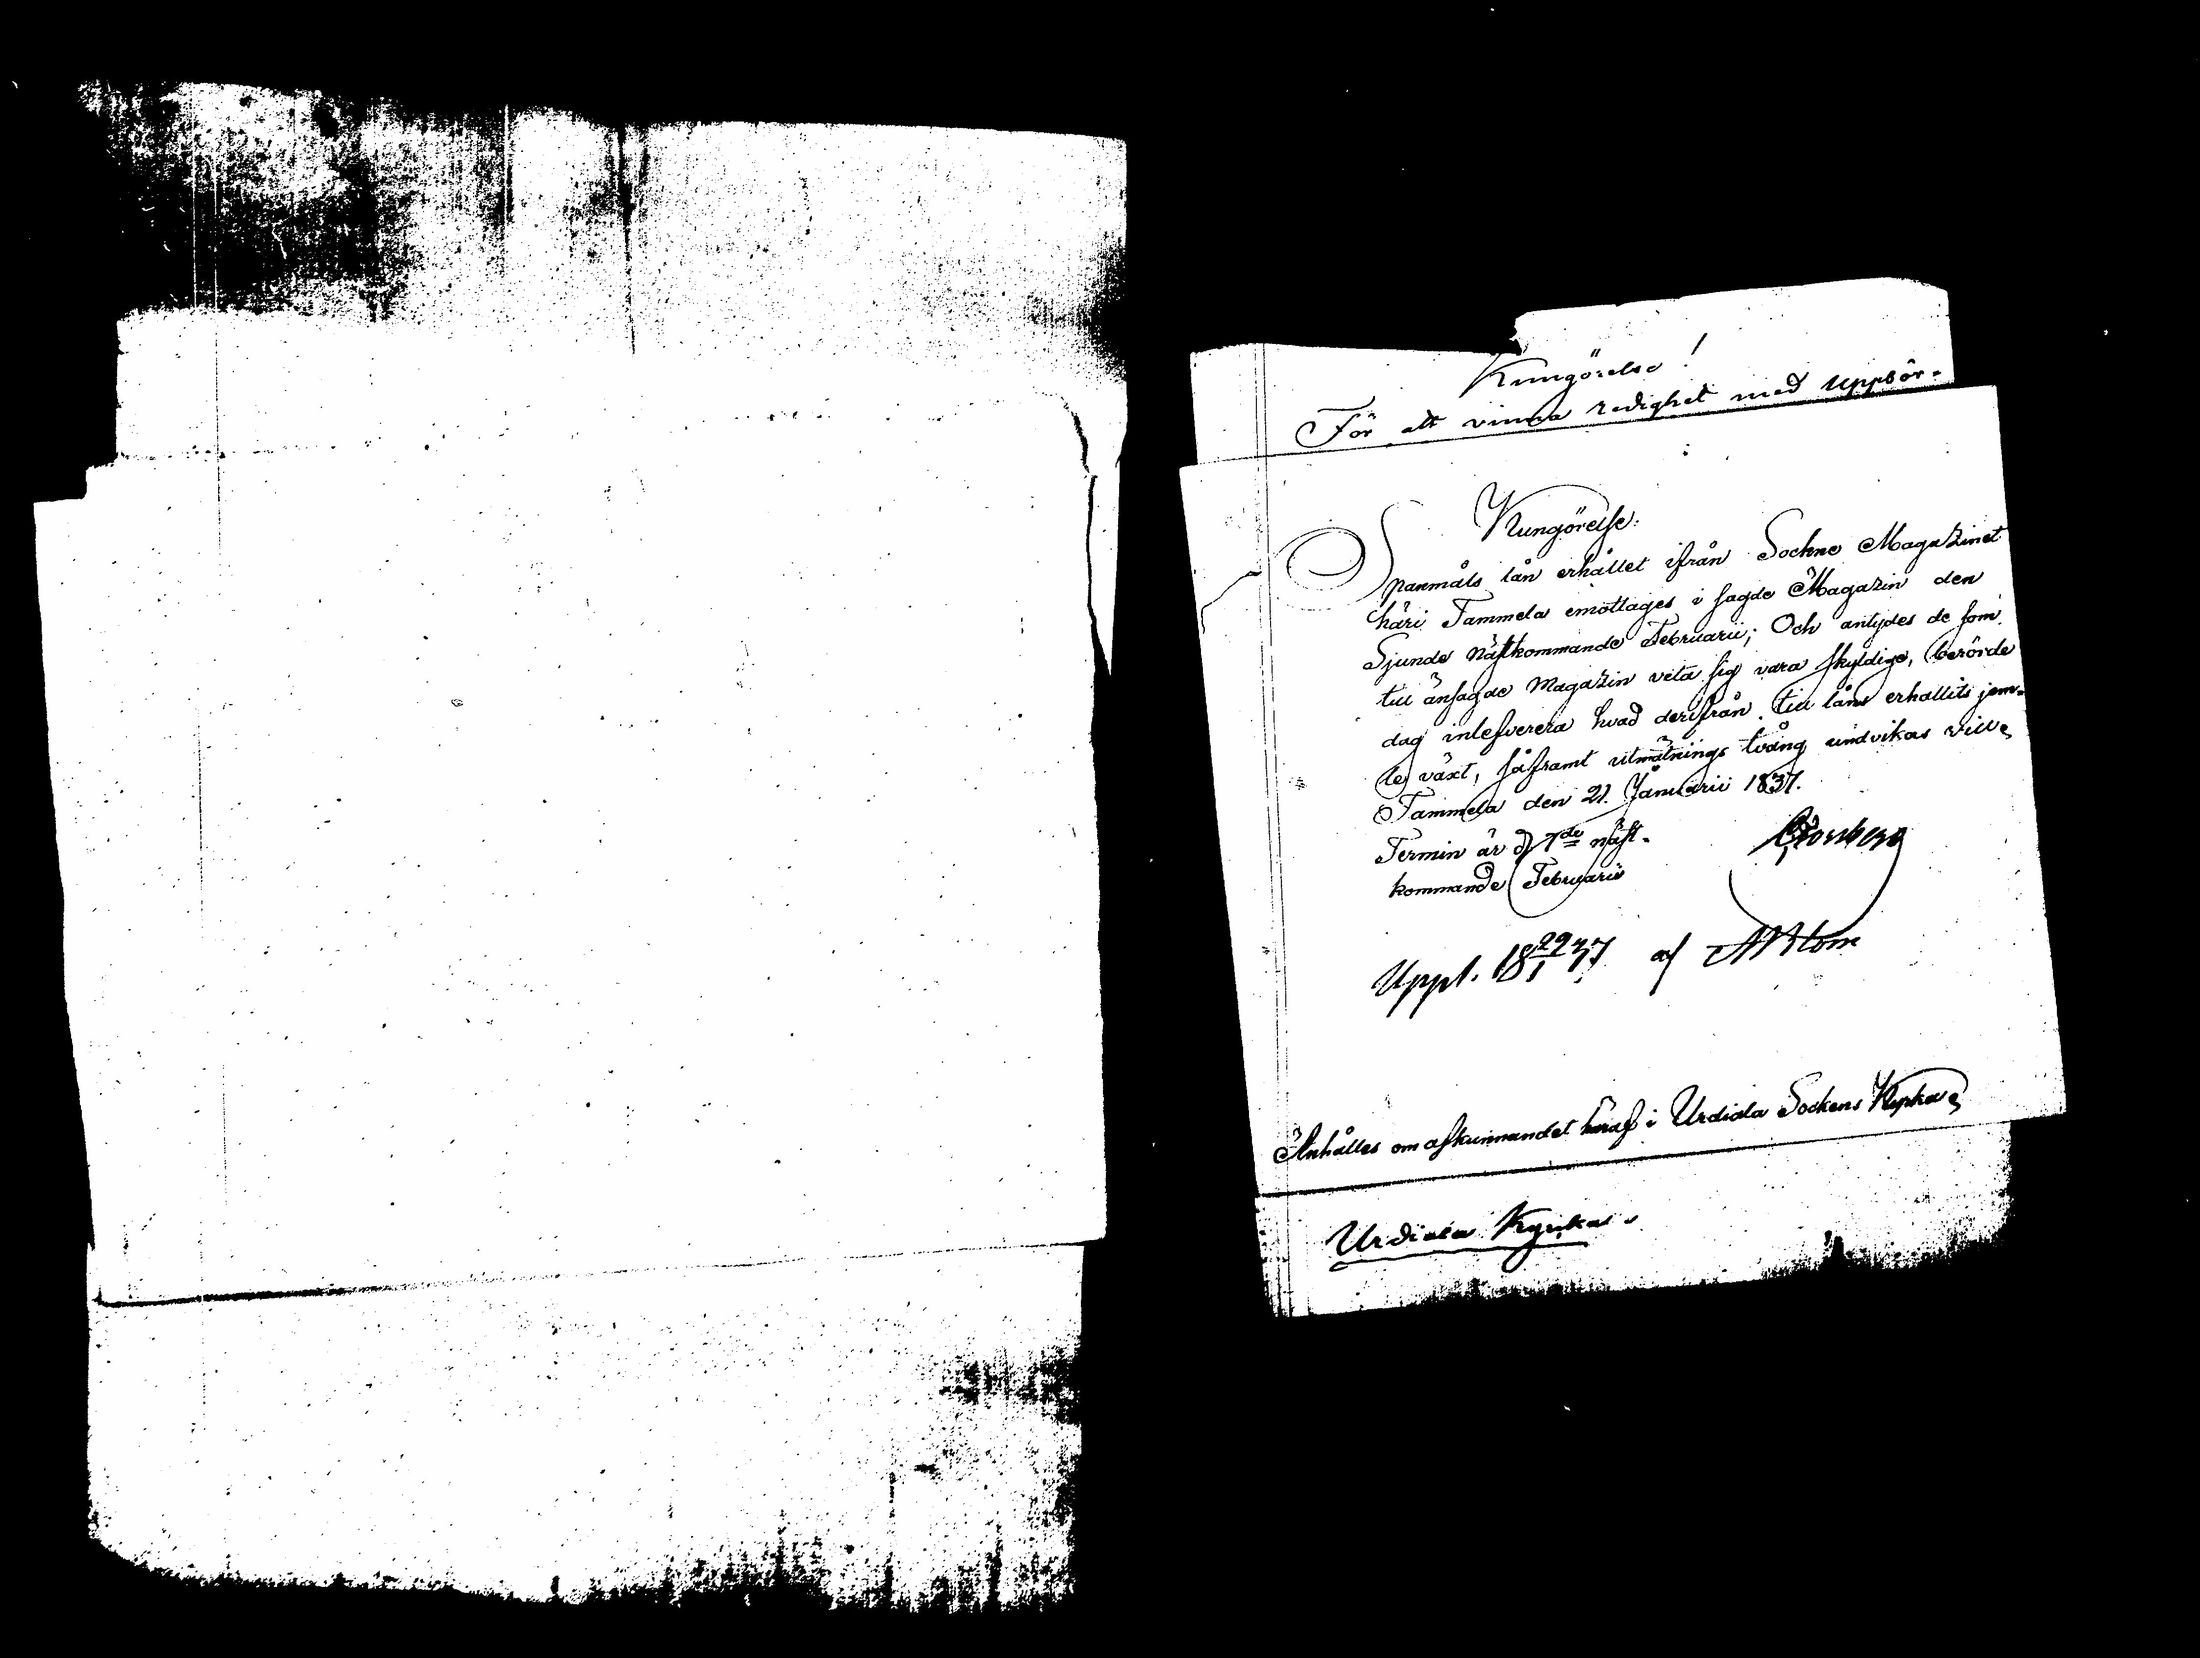 Kungörelse!
För att vinna redighet med uppbör-
Kungörelse.
Spanmåls lån erhållet ifrån Sockne Magazinet
häri Tammela emottages i sagde Magazin den
Sjunde nästkommande Februarii; Och antydes de som
till ånsagde Magazin veta sig vara skyldige, berörde
dag inlefverera hvad derifrån till låns erhållits jem-
te växt, såframt utmätnings tvång undvikas vill,
Tammela den 21. Januarii 1837.
Termin är d 7de näst-
kommande Februarii
Uppl. 18 29/1 37 af
Anhålles om afkunnandet häraf i Urdiala Sockens Kyrka,
Urdiala Kyrka